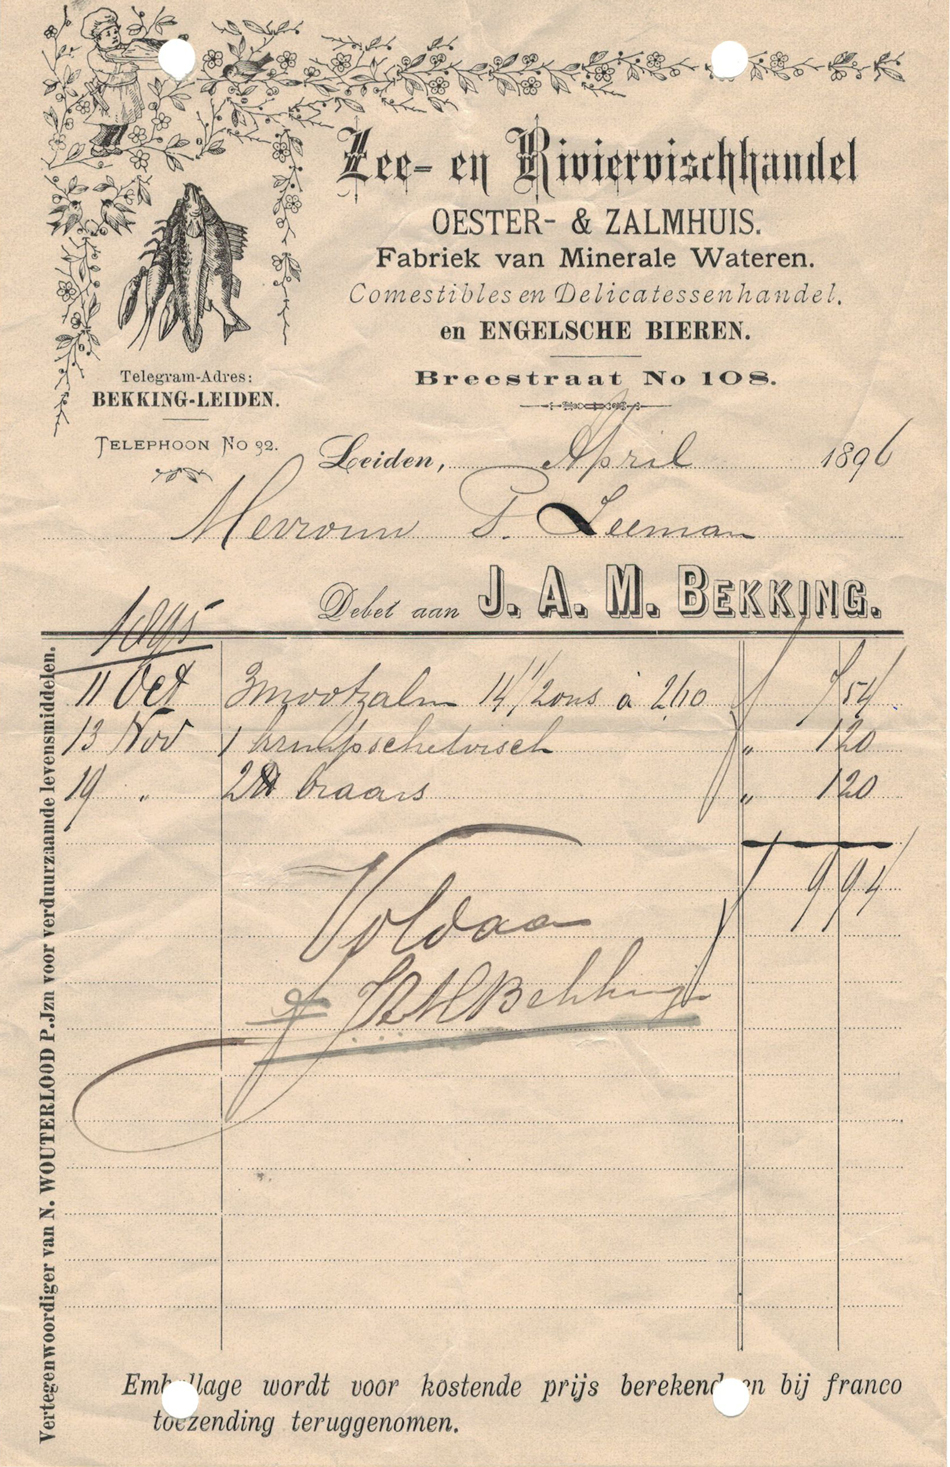 Zee- en Riviervischhandel
OESTER- & ZALMHUIS.
Fabriek van Minerale Wateren.
Comestibles en Delicatessenhandel,
en ENGELSCHE BIEREN.
Breestraat No 108.
Telegram-Adres:
BEKKING-LEIDEN.
TELEPHOON No 92.
Leiden, April 1896
Mevrouw P. Zeeman
Debet aan J. A. M. BEKKING.
1895
11 Oct 3 moot zalm 14 1/2 ons à 2,10 f 7 54
13 Nov 1 krimpschelvisch " 1 20
19 " 2 baars " 1 20
f 9 94
Voldaan
JAMBekking
Vertegenwoordiger van N. WOUTERLOOD P.Jzn voor verduurzaamde levensmiddelen.
Emballage wordt voor kostende prijs berekend en bij franco
toezending teruggenomen.